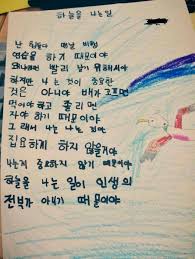 하늘을 나는일
난 하늘이 매일 비행
연습을 하기 때문이야
빨리 날기 위해서야
하지만 나는 것이 중요한
것은 아니야 배가고프면
먹어야 하고 졸리면
자야 하기 때문이야
그래서 나는 나는 것만
집요하게 하지 않을거야
나는게 중요하지 않기 때문이야
하늘을 나는 일이 인생의
전부가 아니기 때문이야